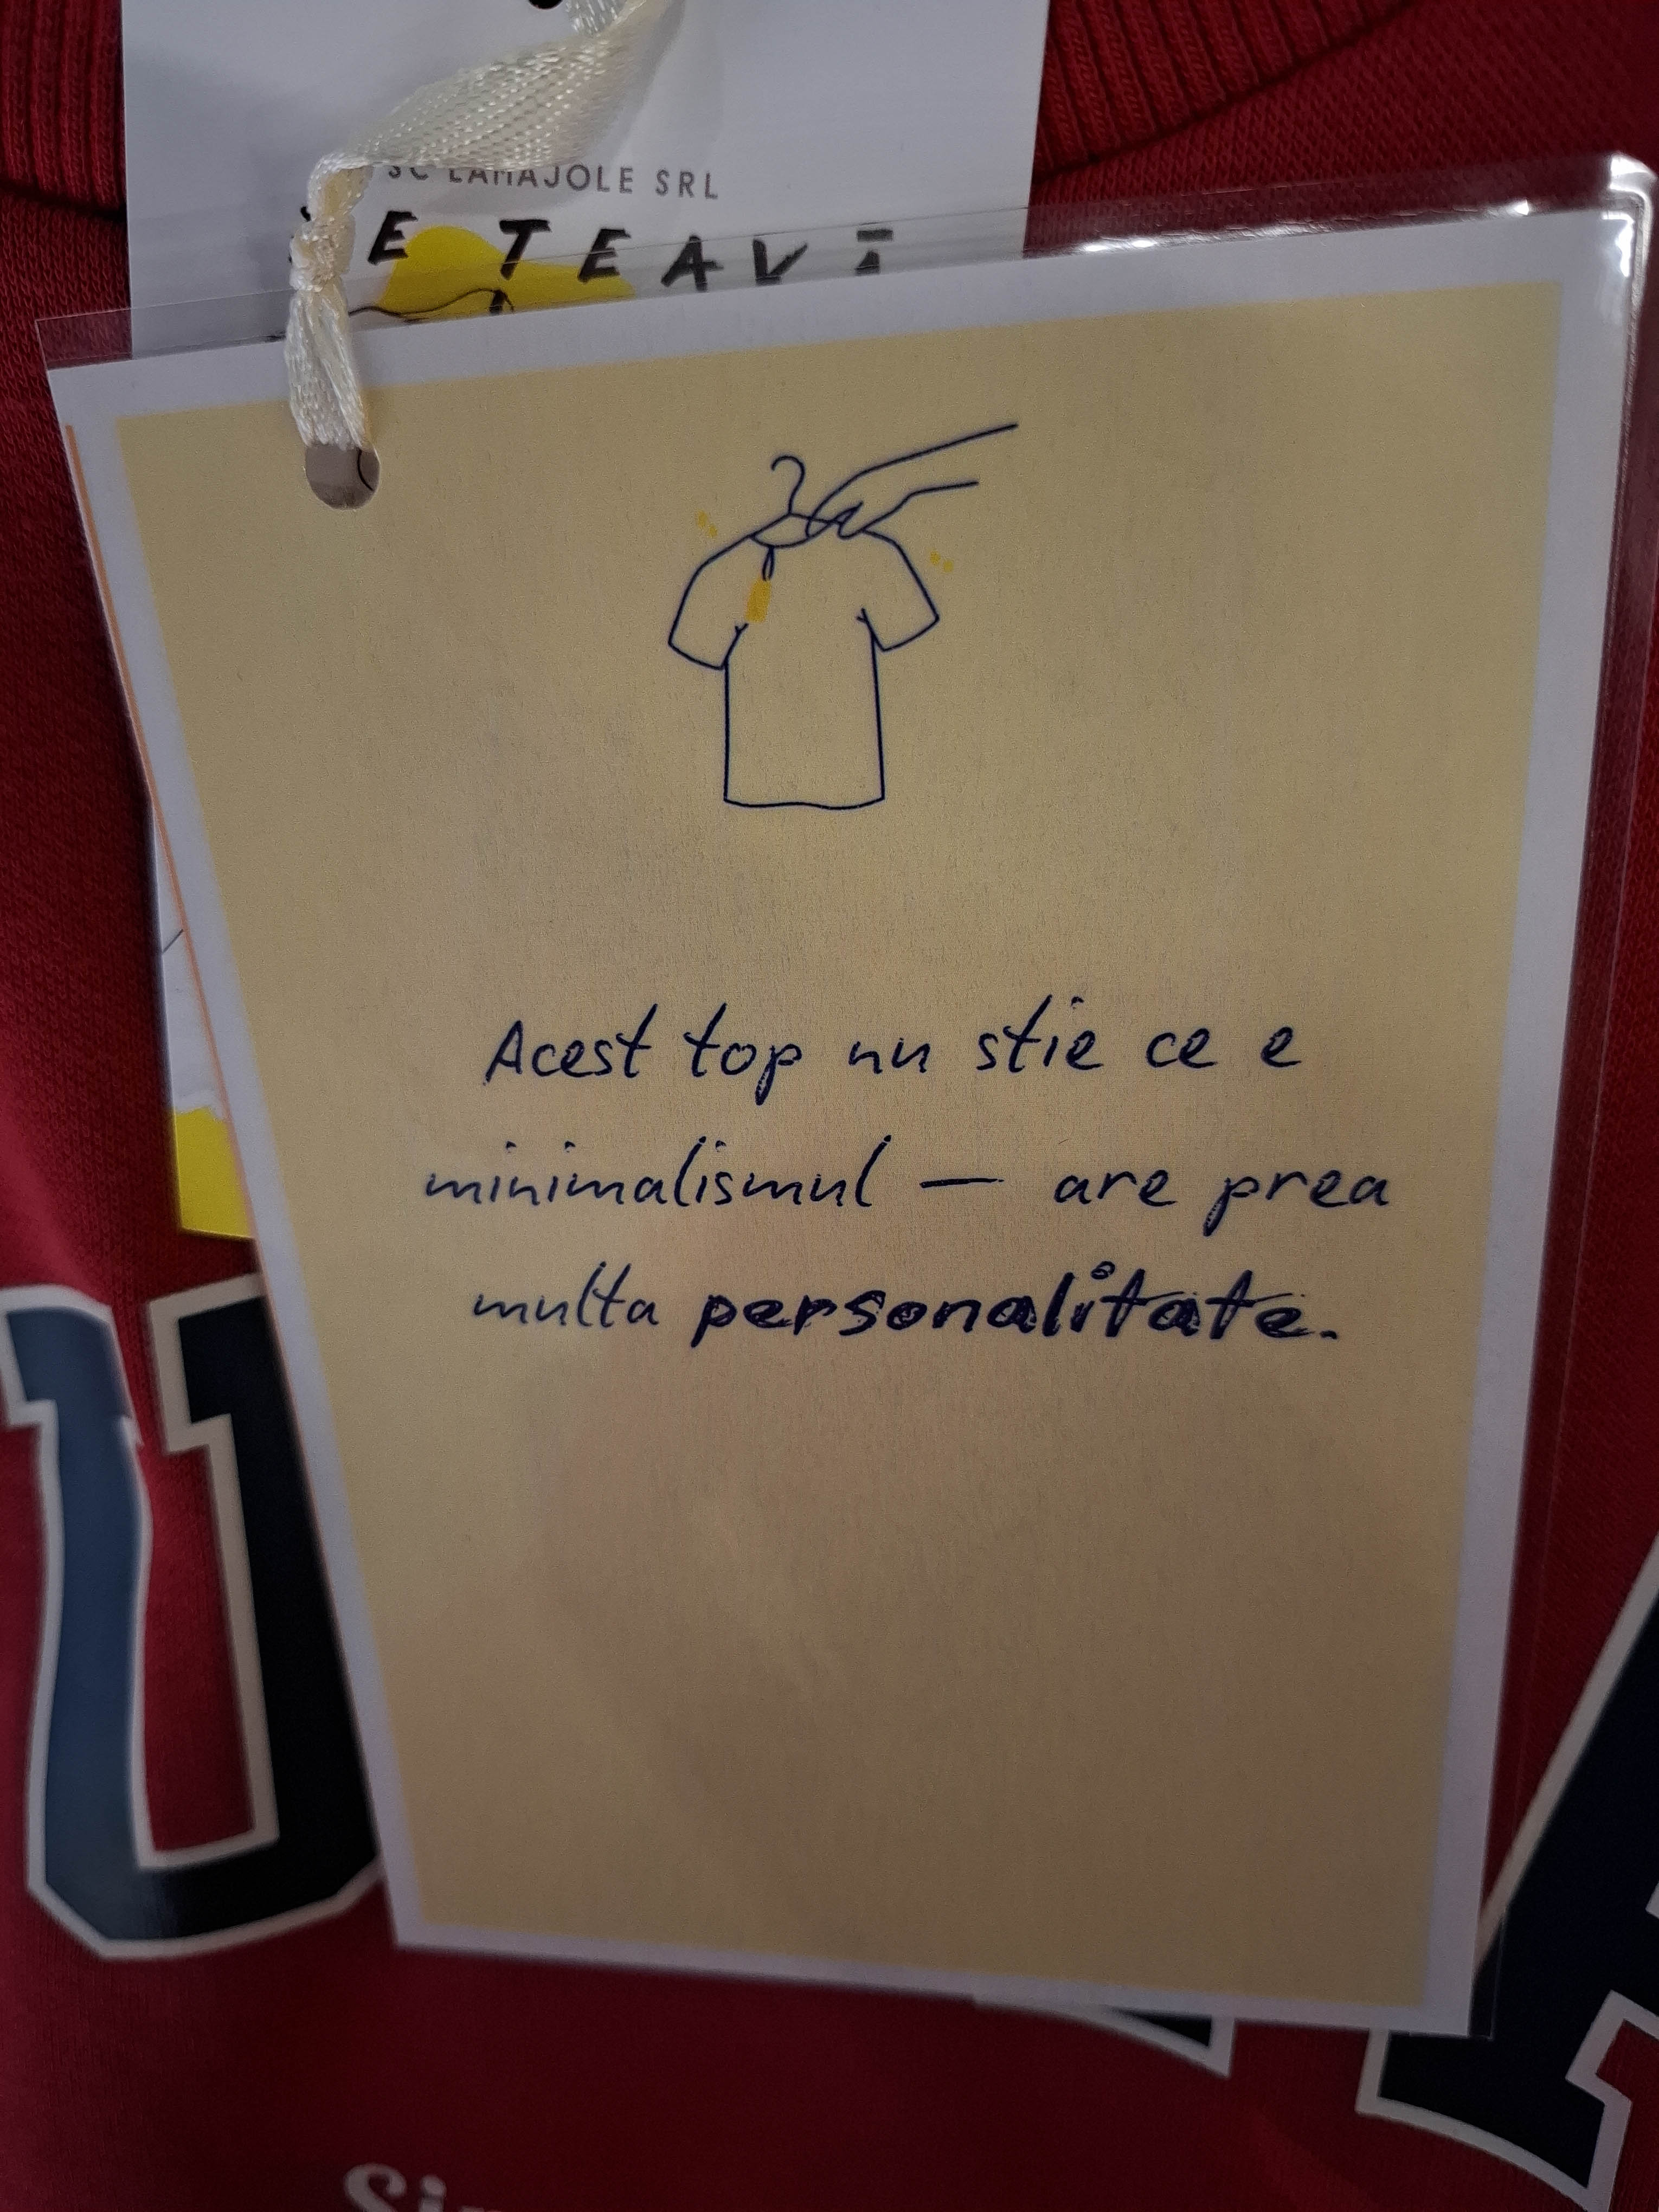 SC LAMAJOLE SRL
E TEAVI
Acest top nu stie ce e
minimalismul — are prea
multa personalitate.